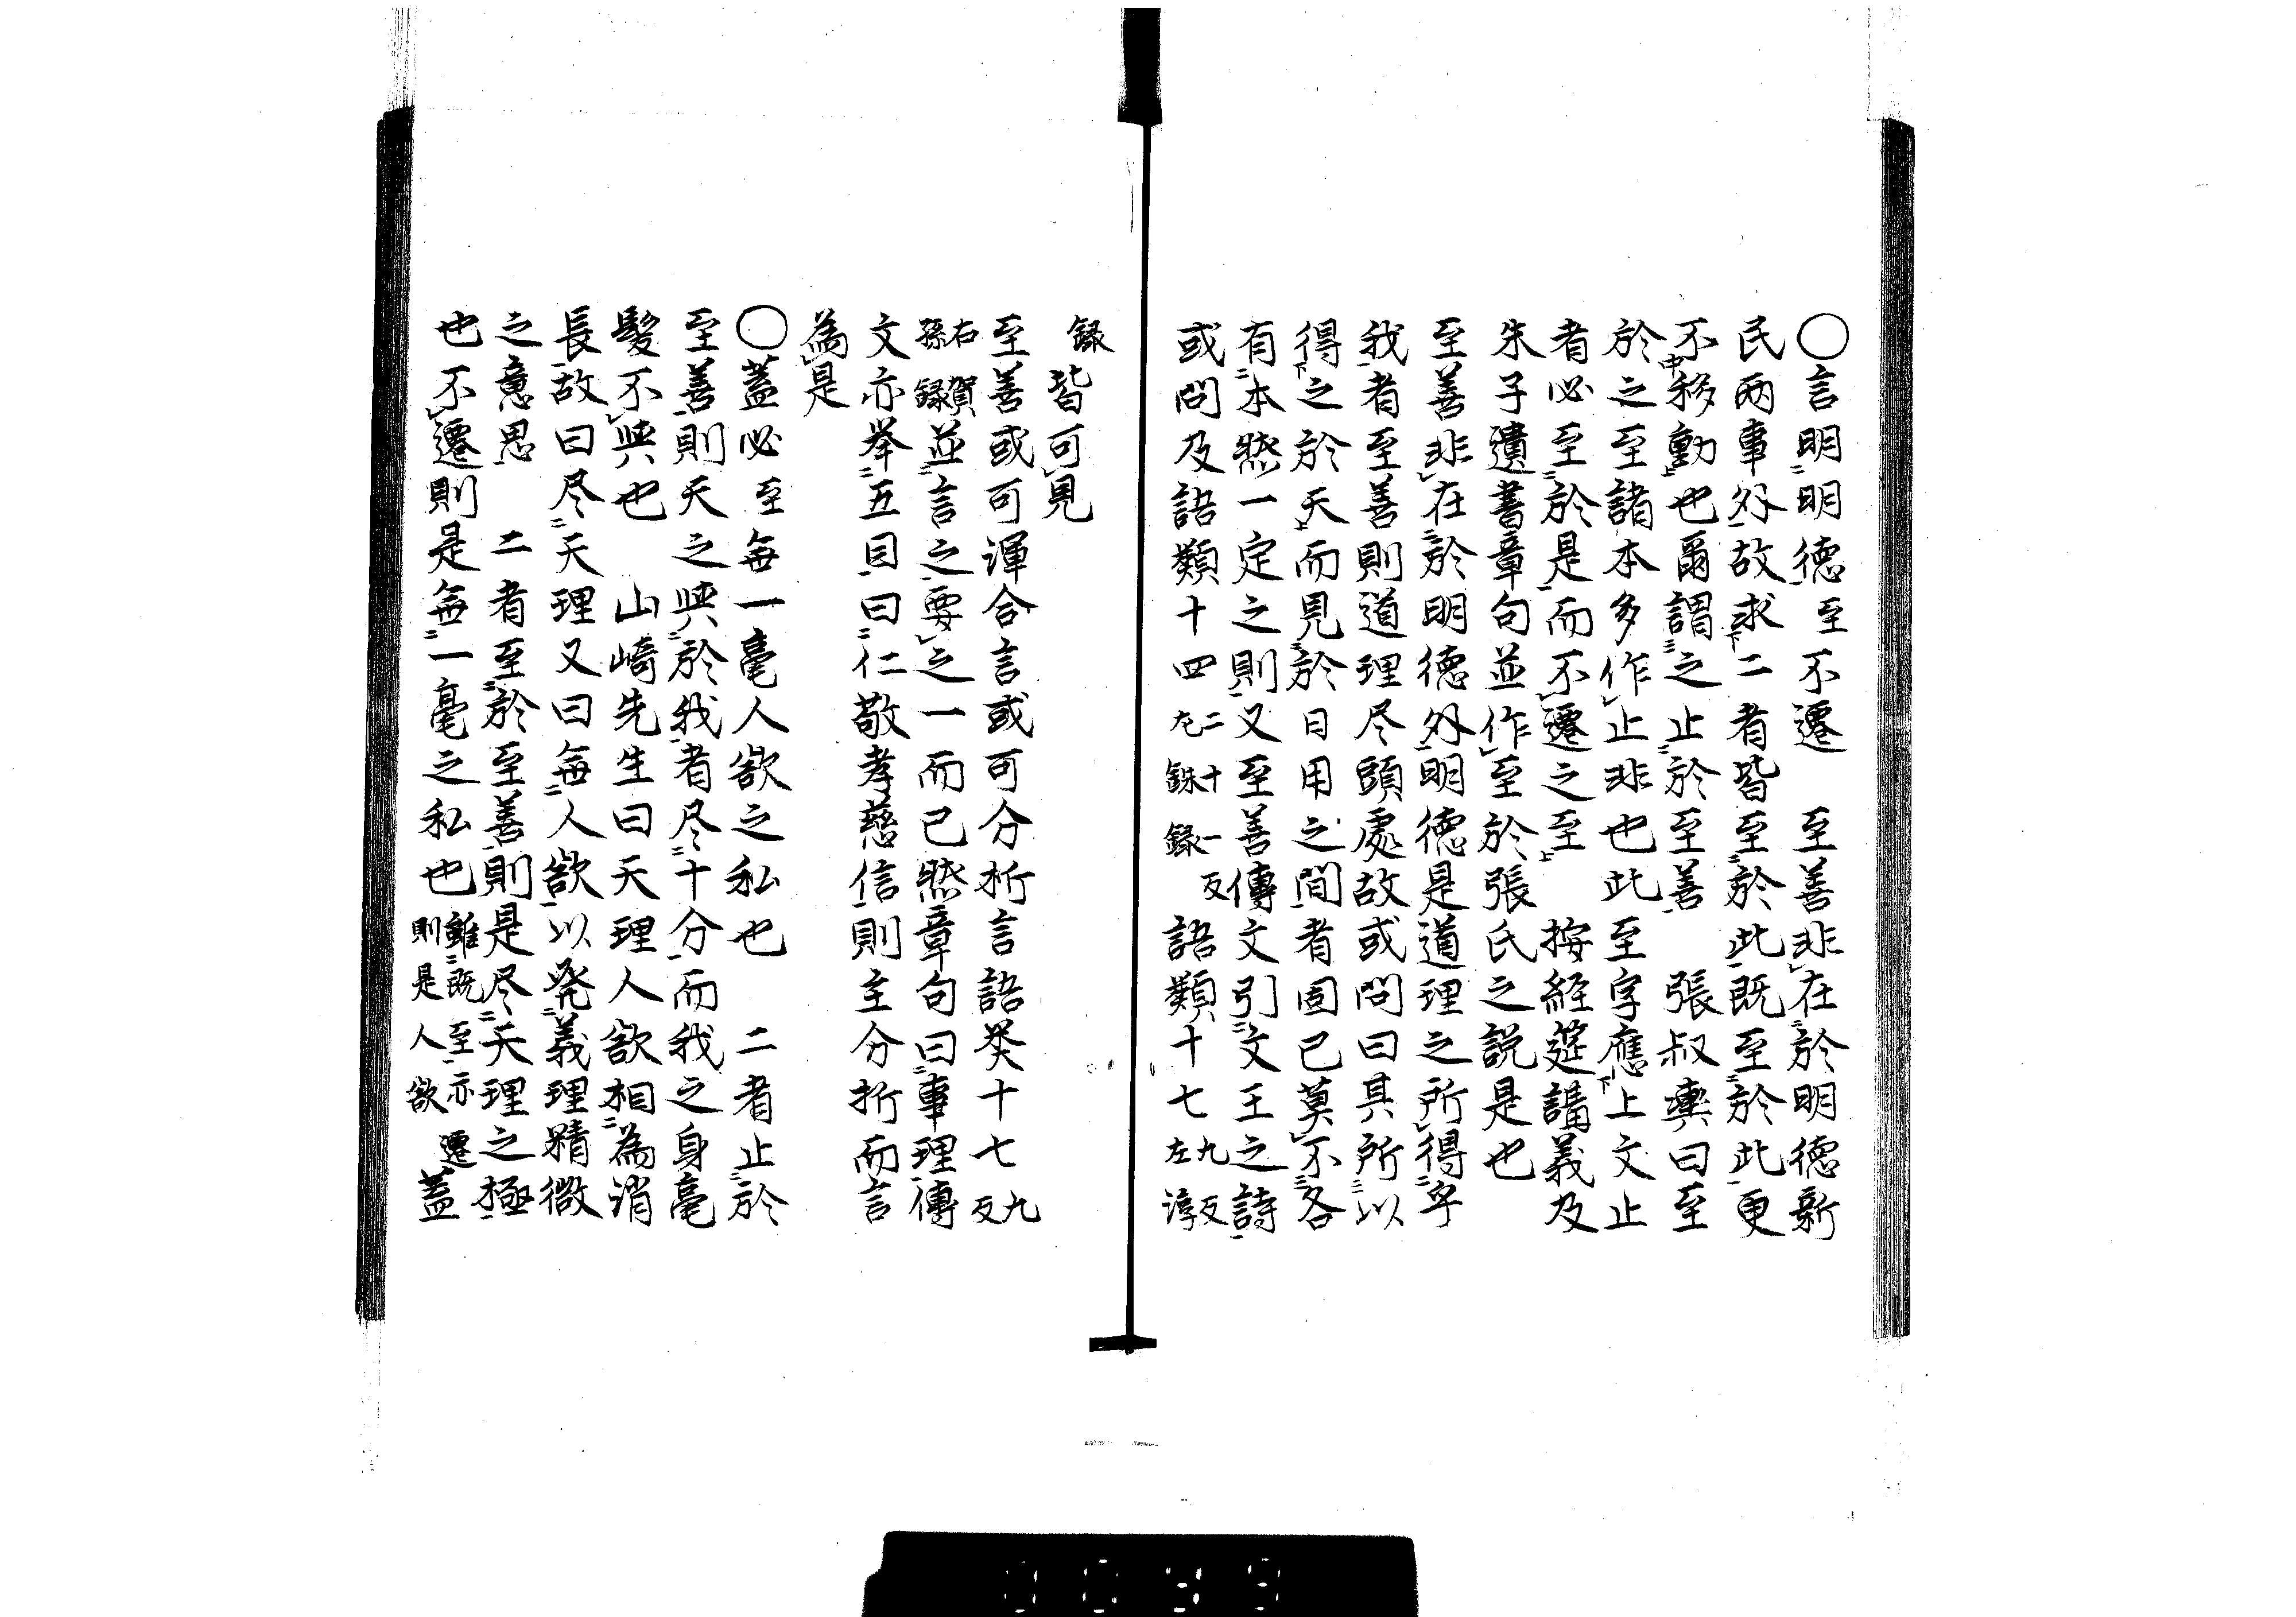 〇言明明德至不遷　至善非在於明德新
民兩事外故求二者皆至於此既至於此更
不移動也爾謂之止於至善　張叔輿曰至
於之至諸本多作止非也此至字應上文止
者必至於是而不遷之至　按經筵講義及
朱子遺書章句並作至於張氏之説是也
至善非在於明德外明德是道理之所得乎
我者至善則道理尽頭處故或問曰其所以
得之於天而見於日用之間者固已莫不各
有本然一定之則又至善傳文引文王之詩
或問及語類十四二十一反左銖録語類十七九反左淳
録皆可見
至善或可渾合言或可分析言語类十七九反
右賀孫録並言之要之一而已然章句曰事理傳
文亦挙五目曰仁敬孝慈信則主分析而言
為是
〇蓋必至無一毫人欲之私也　二者止於
至善則天之與於我者尽十分而我之身毫
髮不與也　山崎先生曰天理人欲相為消
長故曰尽天理又曰無人欲以発義理精微
之意思　二者至於至善則是尽天理之極
也不遷則是無一毫之私也雖既至亦遷則是人欲蓋